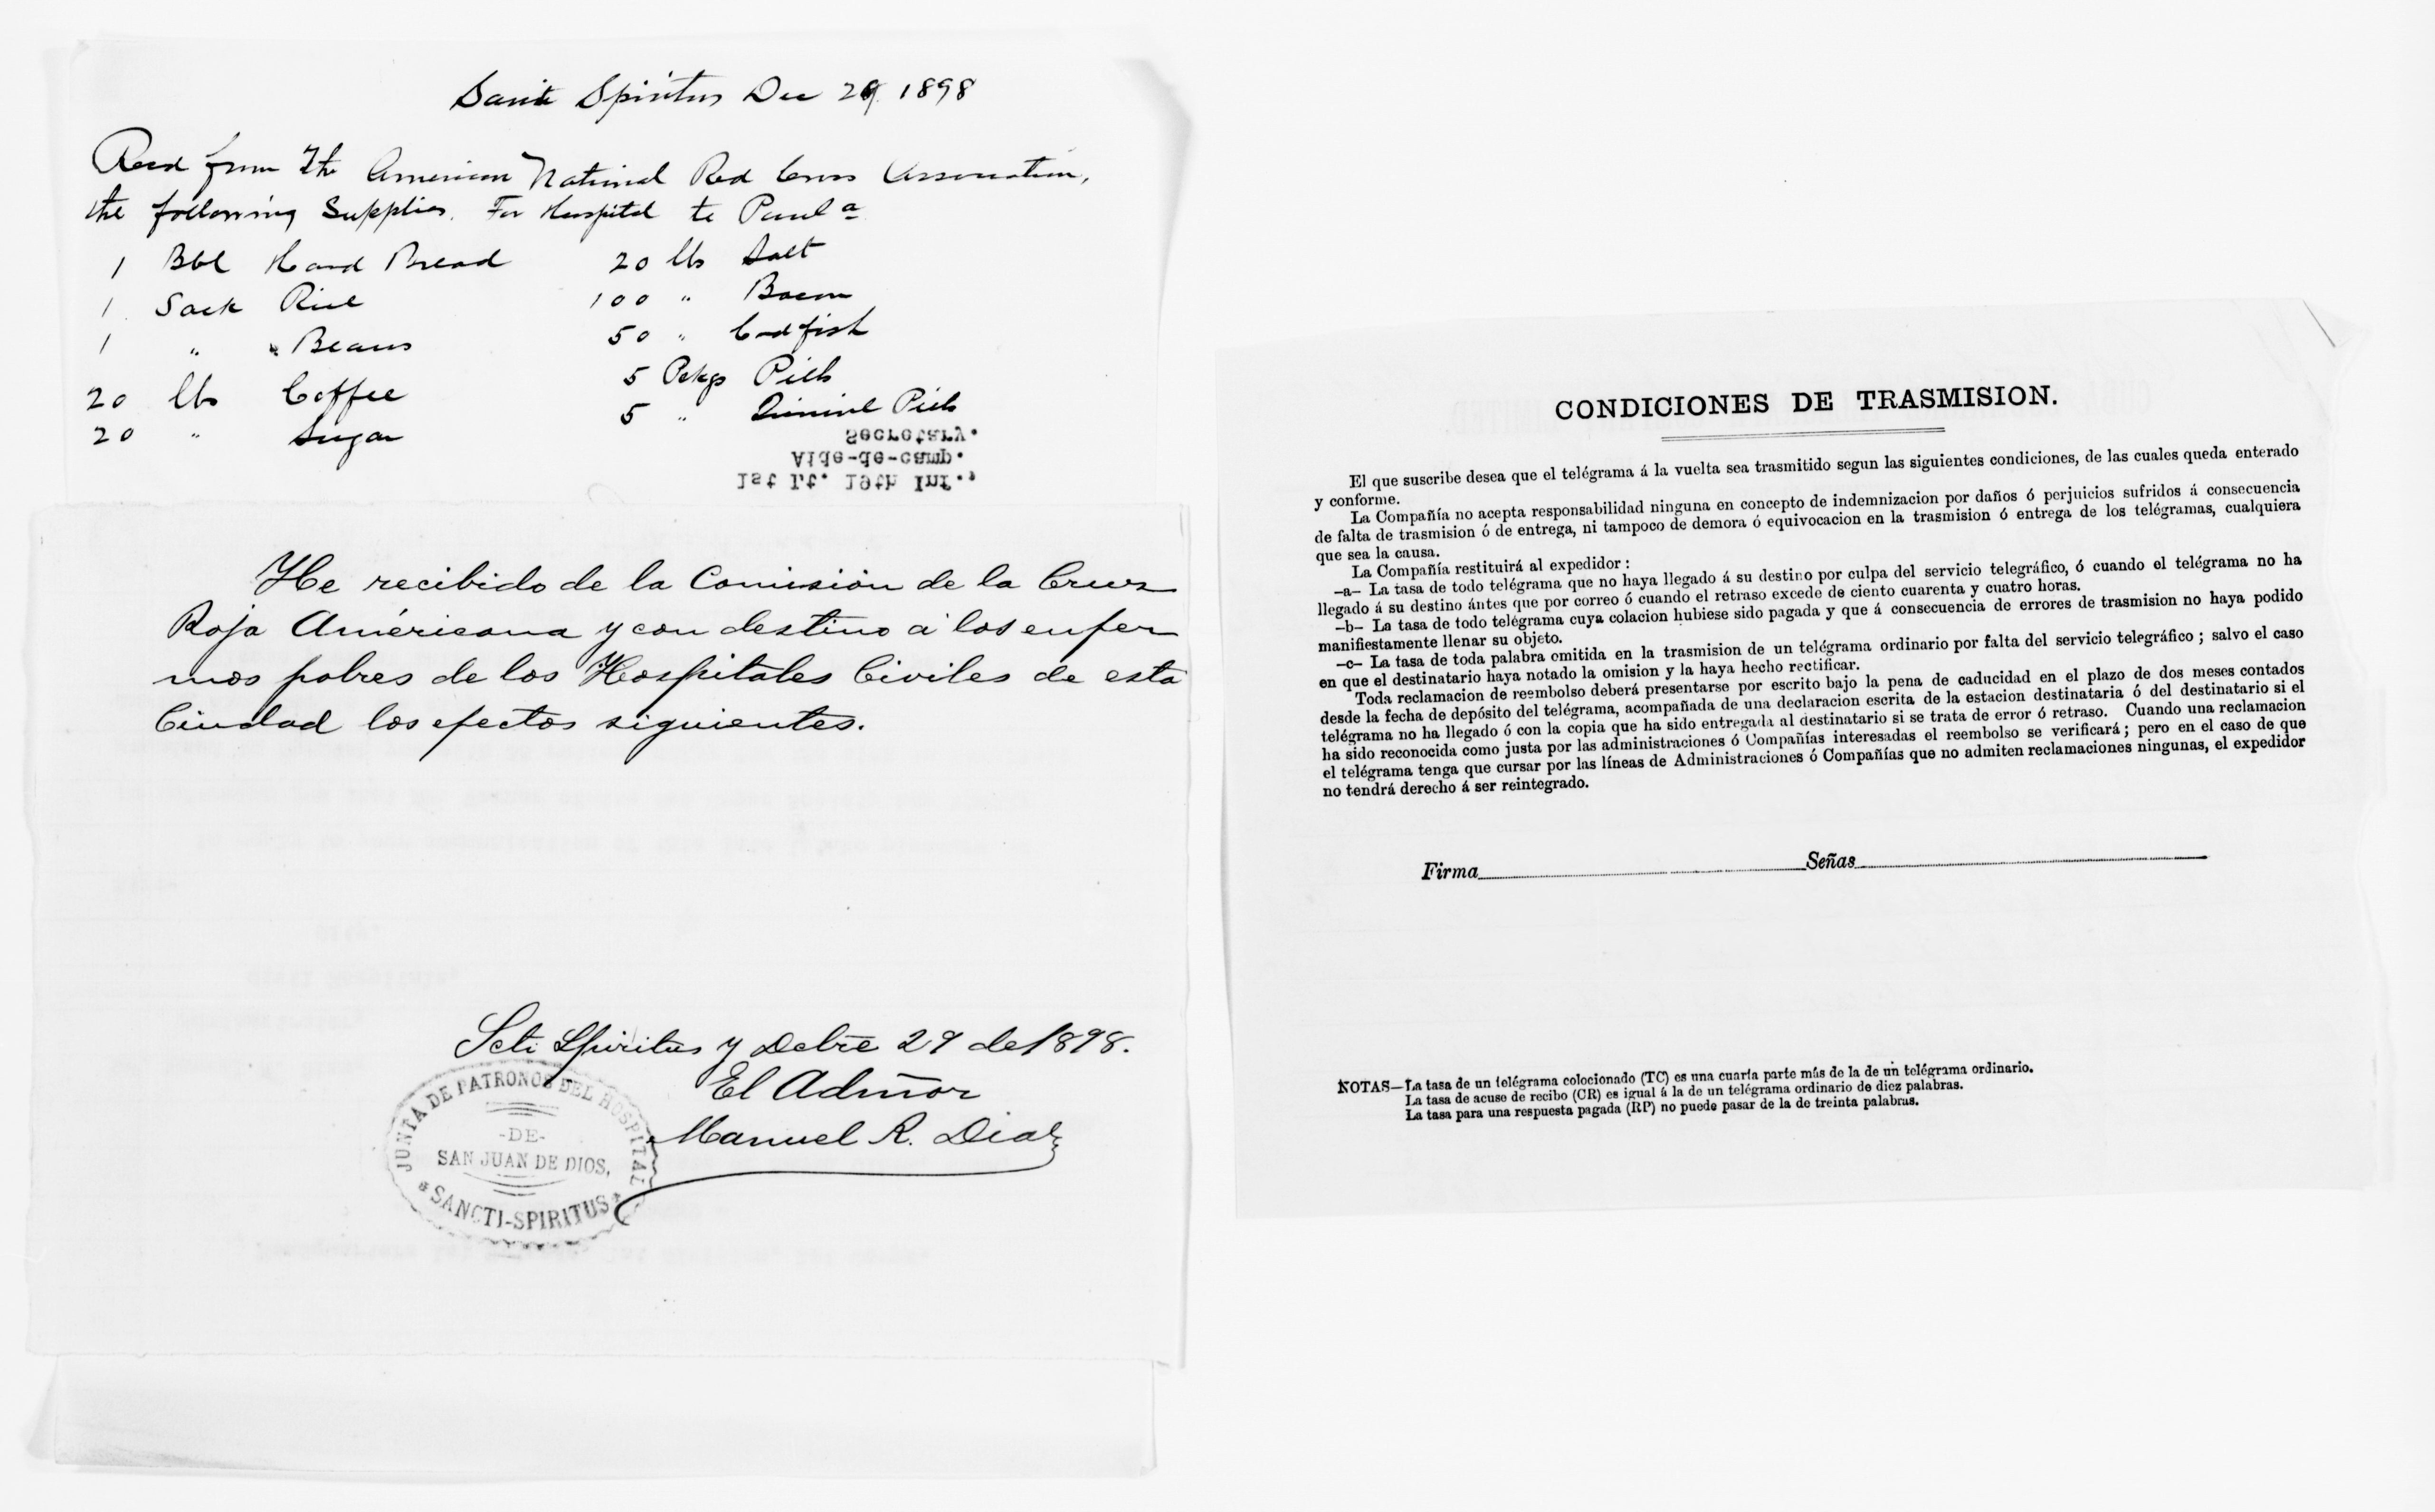 Sancti Spiritus Dec 29 1898
Recd from The American National Red Cross Association,
the following Supplies. For Hospital te Paula
1 Bbl Hard Bread 20 lbs Salt
1 Sack Rice 100 " Bacon
1 " Beans 50 " Codfish
20 lbs Coffee 5 Pckgs Pills
20 " Sugar 5 " Quinine Pills
Secretary.
Aide-de-camp.
1st Lt. 19th Inf.,
He recibido de la Comisión de la Cruz
Roja Américana y con destino á los enfer
mos pobres de los Hospitales Civiles de esta
Ciudad los efectos siguientes.
Scti Spiritus y Debre 29 de 1898.
El Admor
Manuel R. Diaz
JUNTA DE PATRONOS DEL HOSPITAL
-DE-
SAN JUAN DE DIOS,
SANCTI-SPIRITUS
CONDICIONES DE TRASMISION.
El que suscribe desea que el telégrama á la vuelta sea trasmitido segun las siguientes condiciones, de las cuales queda enterado
y conforme.
La Compañía no acepta responsabilidad ninguna en concepto de indemnizacion por daños ó perjuicios sufridos á consecuencia
de falta de trasmision ó de entrega, ni tampoco de demora ó equivocacion en la trasmision ó entrega de los telégramas, cualquiera
que sea la causa.
La Compañía restituirá al expedidor :
—a— La tasa de todo telégrama que no haya llegado á su destino por culpa del servicio telegráfico, ó cuando el telégrama no ha
llegado á su destino ántes que por correo ó cuando el retraso excede de ciento cuarenta y cuatro horas.
—b— La tasa de todo telégrama cuya colacion hubiese sido pagada y que á consecuencia de errores de trasmision no haya podido
manifiestamente llenar su objeto.
—c— La tasa de toda palabra omitida en la trasmision de un telégrama ordinario por falta del servicio telegráfico ; salvo el caso
en que el destinatario haya notado la omision y la haya hecho rectificar.
Toda reclamacion de reembolso deberá presentarse por escrito bajo la pena de caducidad en el plazo de dos meses contados
desde la fecha de depósito del telégrama, acompañada de una declaracion escrita de la estacion destinataria ó del destinatario si el
telégrama no ha llegado ó con la copia que ha sido entregada al destinatario si se trata de error ó retraso. Cuando una reclamacion
ha sido reconocida como justa por las administraciones ó Compañías interesadas el reembolso se verificará ; pero en el caso de que
el telégrama tenga que cursar por las líneas de Administraciones ó Compañías que no admiten reclamaciones ningunas, el expedidor
no tendrá derecho á ser reintegrado.
Firma Señas
NOTAS—La tasa de un telégrama colocionado (TC) es una cuarta parte más de la de un telégrama ordinario.
La tasa de acuse de recibo (CR) es igual á la de un telégrama ordinario de diez palabras.
La tasa para una respuesta pagada (RP) no puede pasar de la de treinta palabras.